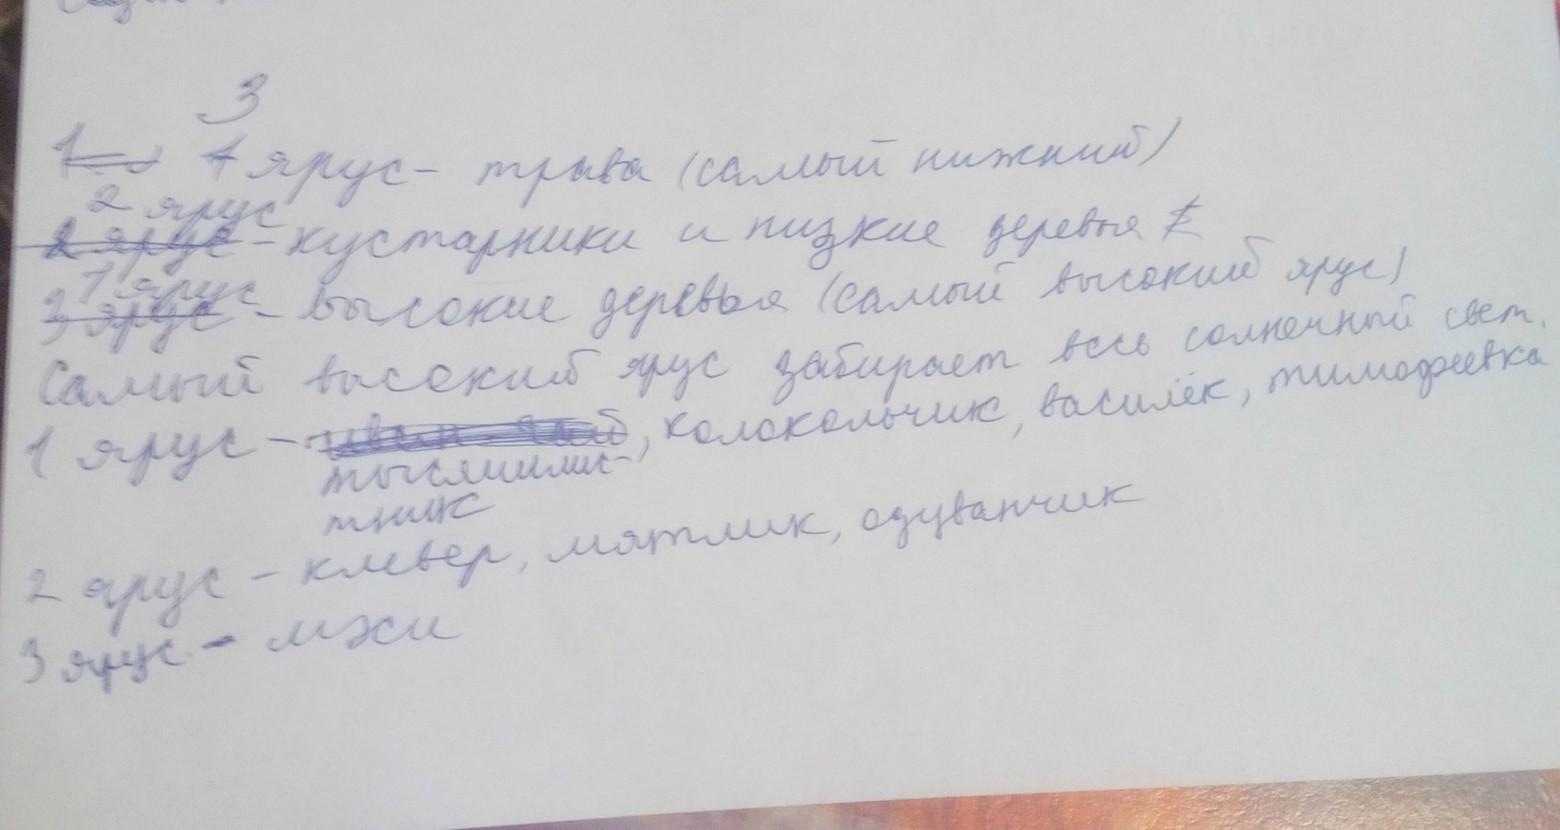 3
ярус - трава (самый нижний)
2 ярус
- кустарники и низкие деревья
1 ярус
- высокие деревья (самый высокий ярус)
Самый высокий ярус забирает весь солнечный свет.
1 ярус - , колокольчик, василёк, тимофеевка
тысячилис-
тник
2 ярус - клевер, мятлик, одуванчик
3 ярус - мхи